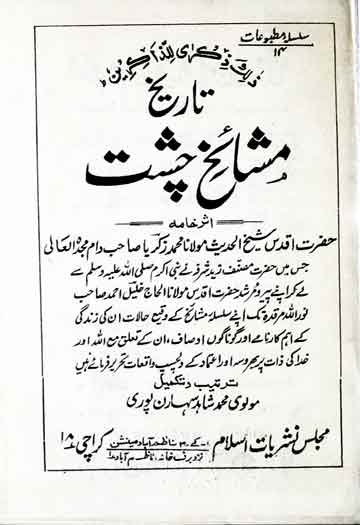 سلسلہ مطبوعات
۱۴
ذٰلِكَ ذِكْرٰى لِلذّٰاكِرِيْنَ
تاریخ
مشائخِ چشت
اثر خامہ
حضرت اقدس شیخ الحدیث مولانا محمد زکریا صاحب دام مجدہ العالی
جس میں حضرت مصنف زید شرفہ نے نبی اکرم صلی اللہ علیہ وسلم سے
لے کر اپنے پیر و مرشد حضرت اقدس مولانا الحاج خلیل احمد صاحب
نور اللہ مرقدہ تک اپنے سلسلہ مشائخ کے وقیع حالات ان کی زندگی
کے اہم کارنامے اور گوناگوں اوصاف، ان کے تعلق مع اللہ اور
خدا کی ذات پر بھروسہ اور اعتماد کے دلچسپ واقعات تحریر فرمائے ہیں
ترتیب و تکمیل
مولوی محمد شاہد سہارن پوری
مجلس نشریات اسلام ۱۔کے۔۳ ناظم آباد مینشن نزد برف خانہ، ناظم آباد ۱ کراچی ۱۸